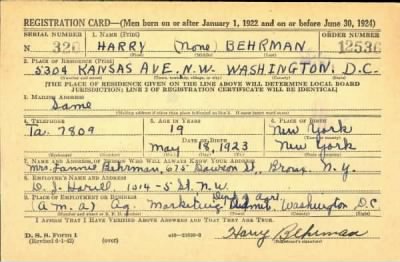 REGISTRATION CARD—(Men born on or after January 1, 1922 and on or before June 30, 1924)
SERIAL NUMBER 1. NAME (Print) ORDER NUMBER
N 320 HARRY (None) BEHRMAN 12536
(First) (Middle) (Last)
2. PLACE OF RESIDENCE (Print)
5304 KANSAS AVE. N.W. WASHINGTON, D.C.
[THE PLACE OF RESIDENCE GIVEN ON THE LINE ABOVE WILL DETERMINE LOCAL BOARD
JURISDICTION; LINE 2 OF REGISTRATION CERTIFICATE WILL BE IDENTICAL]
3. MAILING ADDRESS
Same
4. TELEPHONE 5. AGE IN YEARS 6. PLACE OF BIRTH
Ta. 7809 19 New York
DATE OF BIRTH
May 18, 1923 New York
7. NAME AND ADDRESS OF PERSON WHO WILL ALWAYS KNOW YOUR ADDRESS
Mrs. Fannie Behrman, 675 Dawson St., Bronx, N.Y.
8. EMPLOYER'S NAME AND ADDRESS
D. J. 1014-5 St. N.W.
9. PLACE OF EMPLOYMENT OR BUSINESS
(A.M.A.) Ag. Marketing Admst. Washington D C
I AFFIRM THAT I HAVE VERIFIED ABOVE ANSWERS AND THAT THEY ARE TRUE.
D. S. S. Form 1
(Revised 6-1-42) (over) Harry Behrman